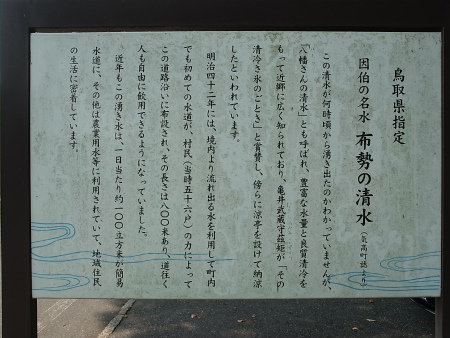 鳥取県指定
因伯の名水 布勢の清水(気高町誌より)
この清水が何時頃から湧き出たのかわかっていませんが、
「八幡さんの清水」とも呼ばれ、豊富な水量と良質清冷を
もって近郷に広く知られており、亀井武蔵守茲矩が「その
清冷さ氷のごとき」と賞賛し、傍らに涼亭を設けて納涼
したといわれています。
明治四十二年には、境内より流れ出る水を利用して町内
でも初めての水道が、村民(当時五十六戸)の力によって
この道路沿いに布設され、その長さは八〇〇米あり、道往く
人も自由に飲用できるようになっていました。
近年もこの湧き水は、一日当たり約一〇〇立方米が簡易
水道に、その他は農業用水等に利用されていて、地域住民
の生活に密着しています。